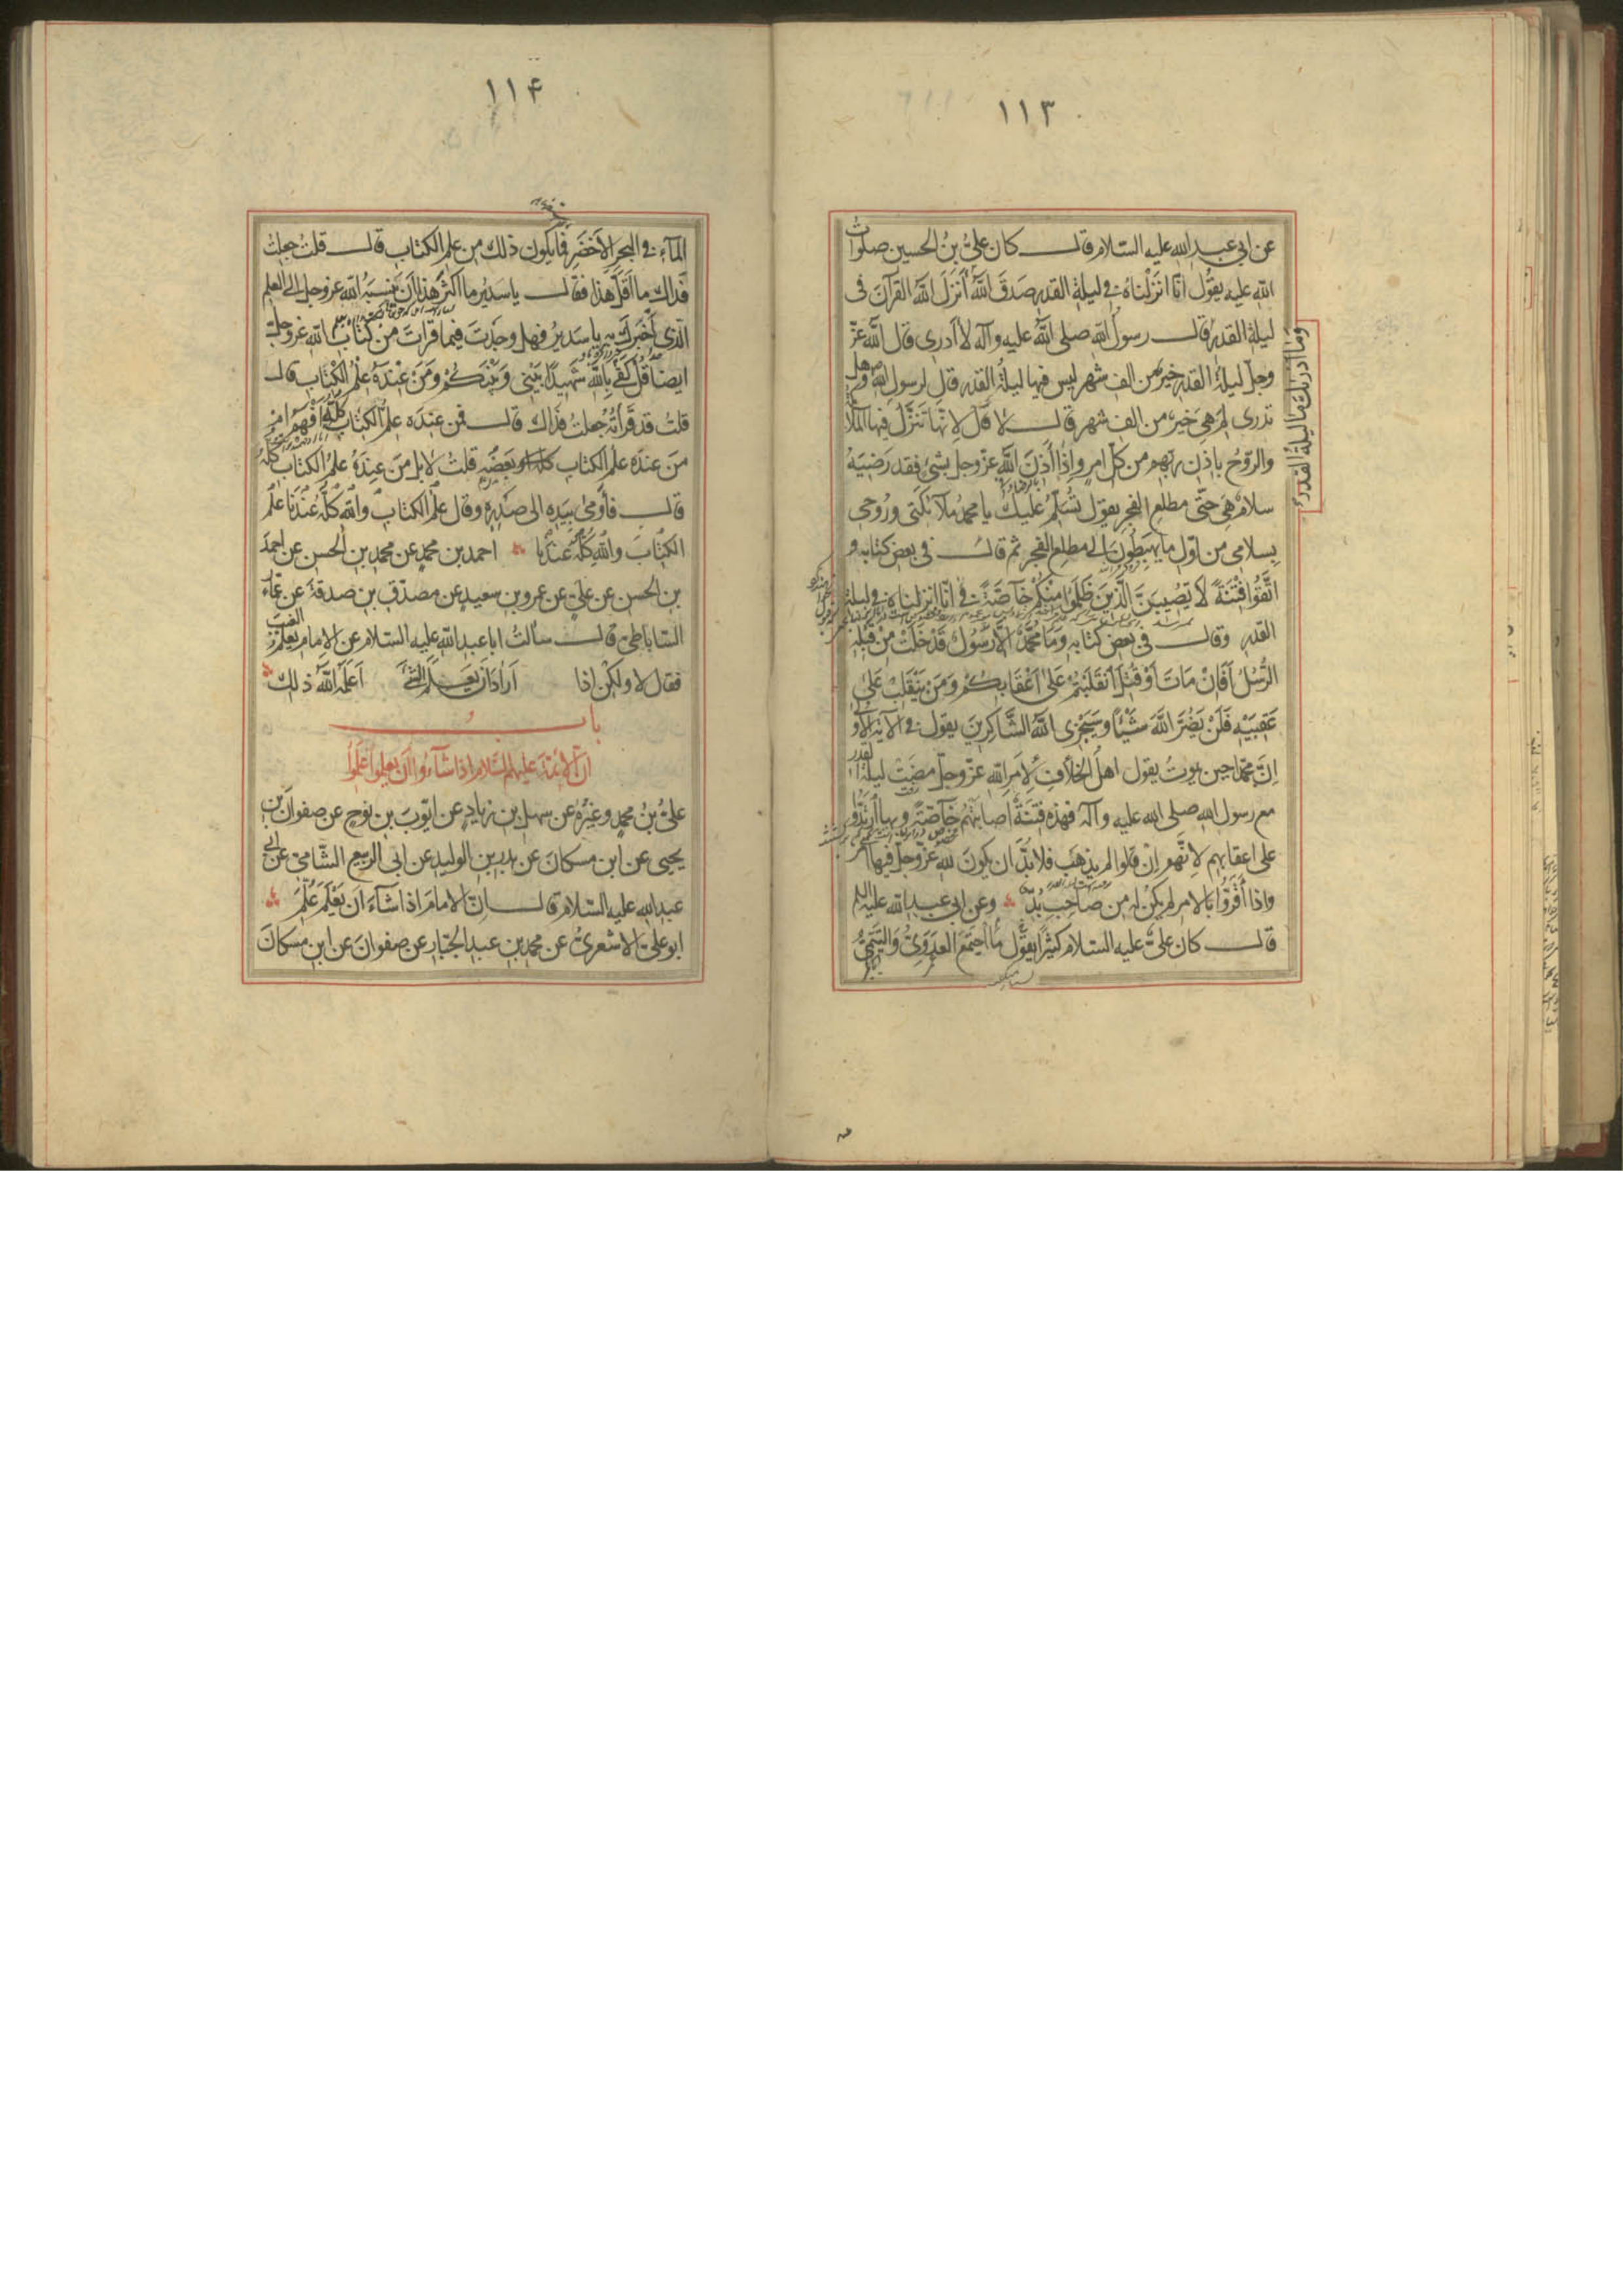 ١١٣
عن ابي عبد الله عليه السلام قال كان عليُّ بنُ الحسين صلواتُ
الله عليه يقول انّا انزلناه في ليلة القدر صدق اللهُ أنزل اللهُ القرآن في
ليلة القدر قال رسول الله صلى الله عليه وآله لا أدرى قال الله عزّ
وما ادريك ما ليلة القدر
وجلّ ليلةُ القدر خير من الف شهر ليس فيها ليلةُ القدر قال لرسول الله وهل
تدرى لم هي خير من الف شهر قال لا قال لانها تنزّل فيها الملا
والروح باذن ربهم من كل امر واذا أذن الله عزّ وجل بشئ فقد رضيه
سلام هي حتّى مطلع الفجر يقول تسلّم عليك يا محمد ملائكتى وروحى
بسلامى من اول ما يهبطون الى مطلع الفجر ثم قال في بعض كتابه و
اتّقوا فتنة لا تصيبنّ الذين ظلموا منكم خاصّة في انّا انزلناه في ليلة
القدر وقال في بعض كتابه وما محمّد الّا رسول قد خلت من قبله
الرّسل أفان مات أو قتل انقلبتم على أعقابكم ومن ينقلب على
عقبيه فلن يضرّ الله شيئا وسيجزى الله الشاكرين يقول في الآية الأولى
انّ محمّدا حين يموت يقول اهل الخلاف لأمر الله عزّ وجلّ مضت ليلة القدر
مع رسول الله صلى الله عليه وآله فهذه فتنة أصابتهم خاصّة وبها ارتدّوا
على اعقابهم لانّهم ان قالوا لم يذهب فلا بدّ ان يكون لله عزّ وجلّ فيها أمر
واذا أقرّوا بالامر لم يكن له من صاحب بدّ وعن ابي عبد الله عليه السلم
قال كان عليّ عليه السلام كثيرا يقول ما اجتمع العدوىّ والتيمىّ
١١۴
الماء في البحر الأخضر فما يكون ذلك من علم الكتاب قال قلت جعلت
فداك ما أقلّ هذا فقال يا سدير ما أكثر هذا ان ينسبه الله عز وجل الى العلم
الذى أخبرك به يا سدير فهل وجدت فيما قرأت من كتاب الله عز وجلّ
ايضا قل كفى بالله شهيدا بينى وبينكم ومن عنده علم الكتاب قال
قلت قد قرأته جعلت فداك قال فمن عنده علم الكتاب كلّه أفهم ام
من عنده علم الكتاب بعضه قلت لا بل من عنده علم الكتاب كلّه
قال فأومى بيده الى صدره وقال علم الكتاب والله كلّه عندنا علم
الكتاب والله كلّه عندنا احمد بن محمد عن محمد بن الحسن عن احمد
بن الحسن عن علي عن عمرو بن سعيد عن مصدّق بن صدقة عن عمّار
الساباطى قال سألت ابا عبد الله عليه السلام عن الامام يعلم الغيب
فقال لا ولكن اذا أراد ان يعلم الشئ أعلمه الله ذلك
باب
انّ الأئمّة عليهم السّلام اذا شاءوا ان يعلموا علموا
عليّ بن محمد وغيره عن سهل بن زياد عن ايّوب بن نوح عن صفوان بن
يحيى عن ابن مسكان عن بدر بن الوليد عن ابى الربيع الشامىّ عن ابى
عبد الله عليه السّلام قال انّ الامام اذا شاء ان يعلم علّم
ابو علىّ الاشعرىّ عن محمد بن عبد الجبّار عن صفوان عن ابن مسكان